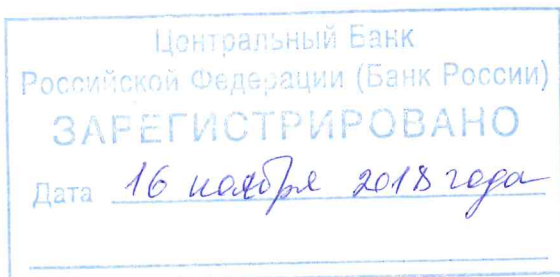 Центральный Банк
Российской Федерации (Банк России)
ЗАРЕГИСТРИРОВАНО
Дата 16 ноября 2018 года